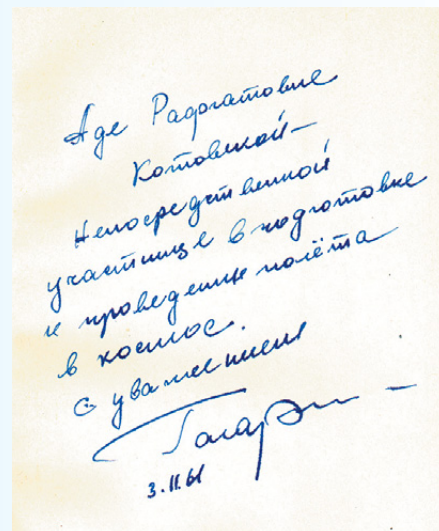 Аде Радогатовне
Котовской –
Непосредственной
участнице в подготовке
и проведении полёта
в космос.
С уважением
Гагарин
3.11.61